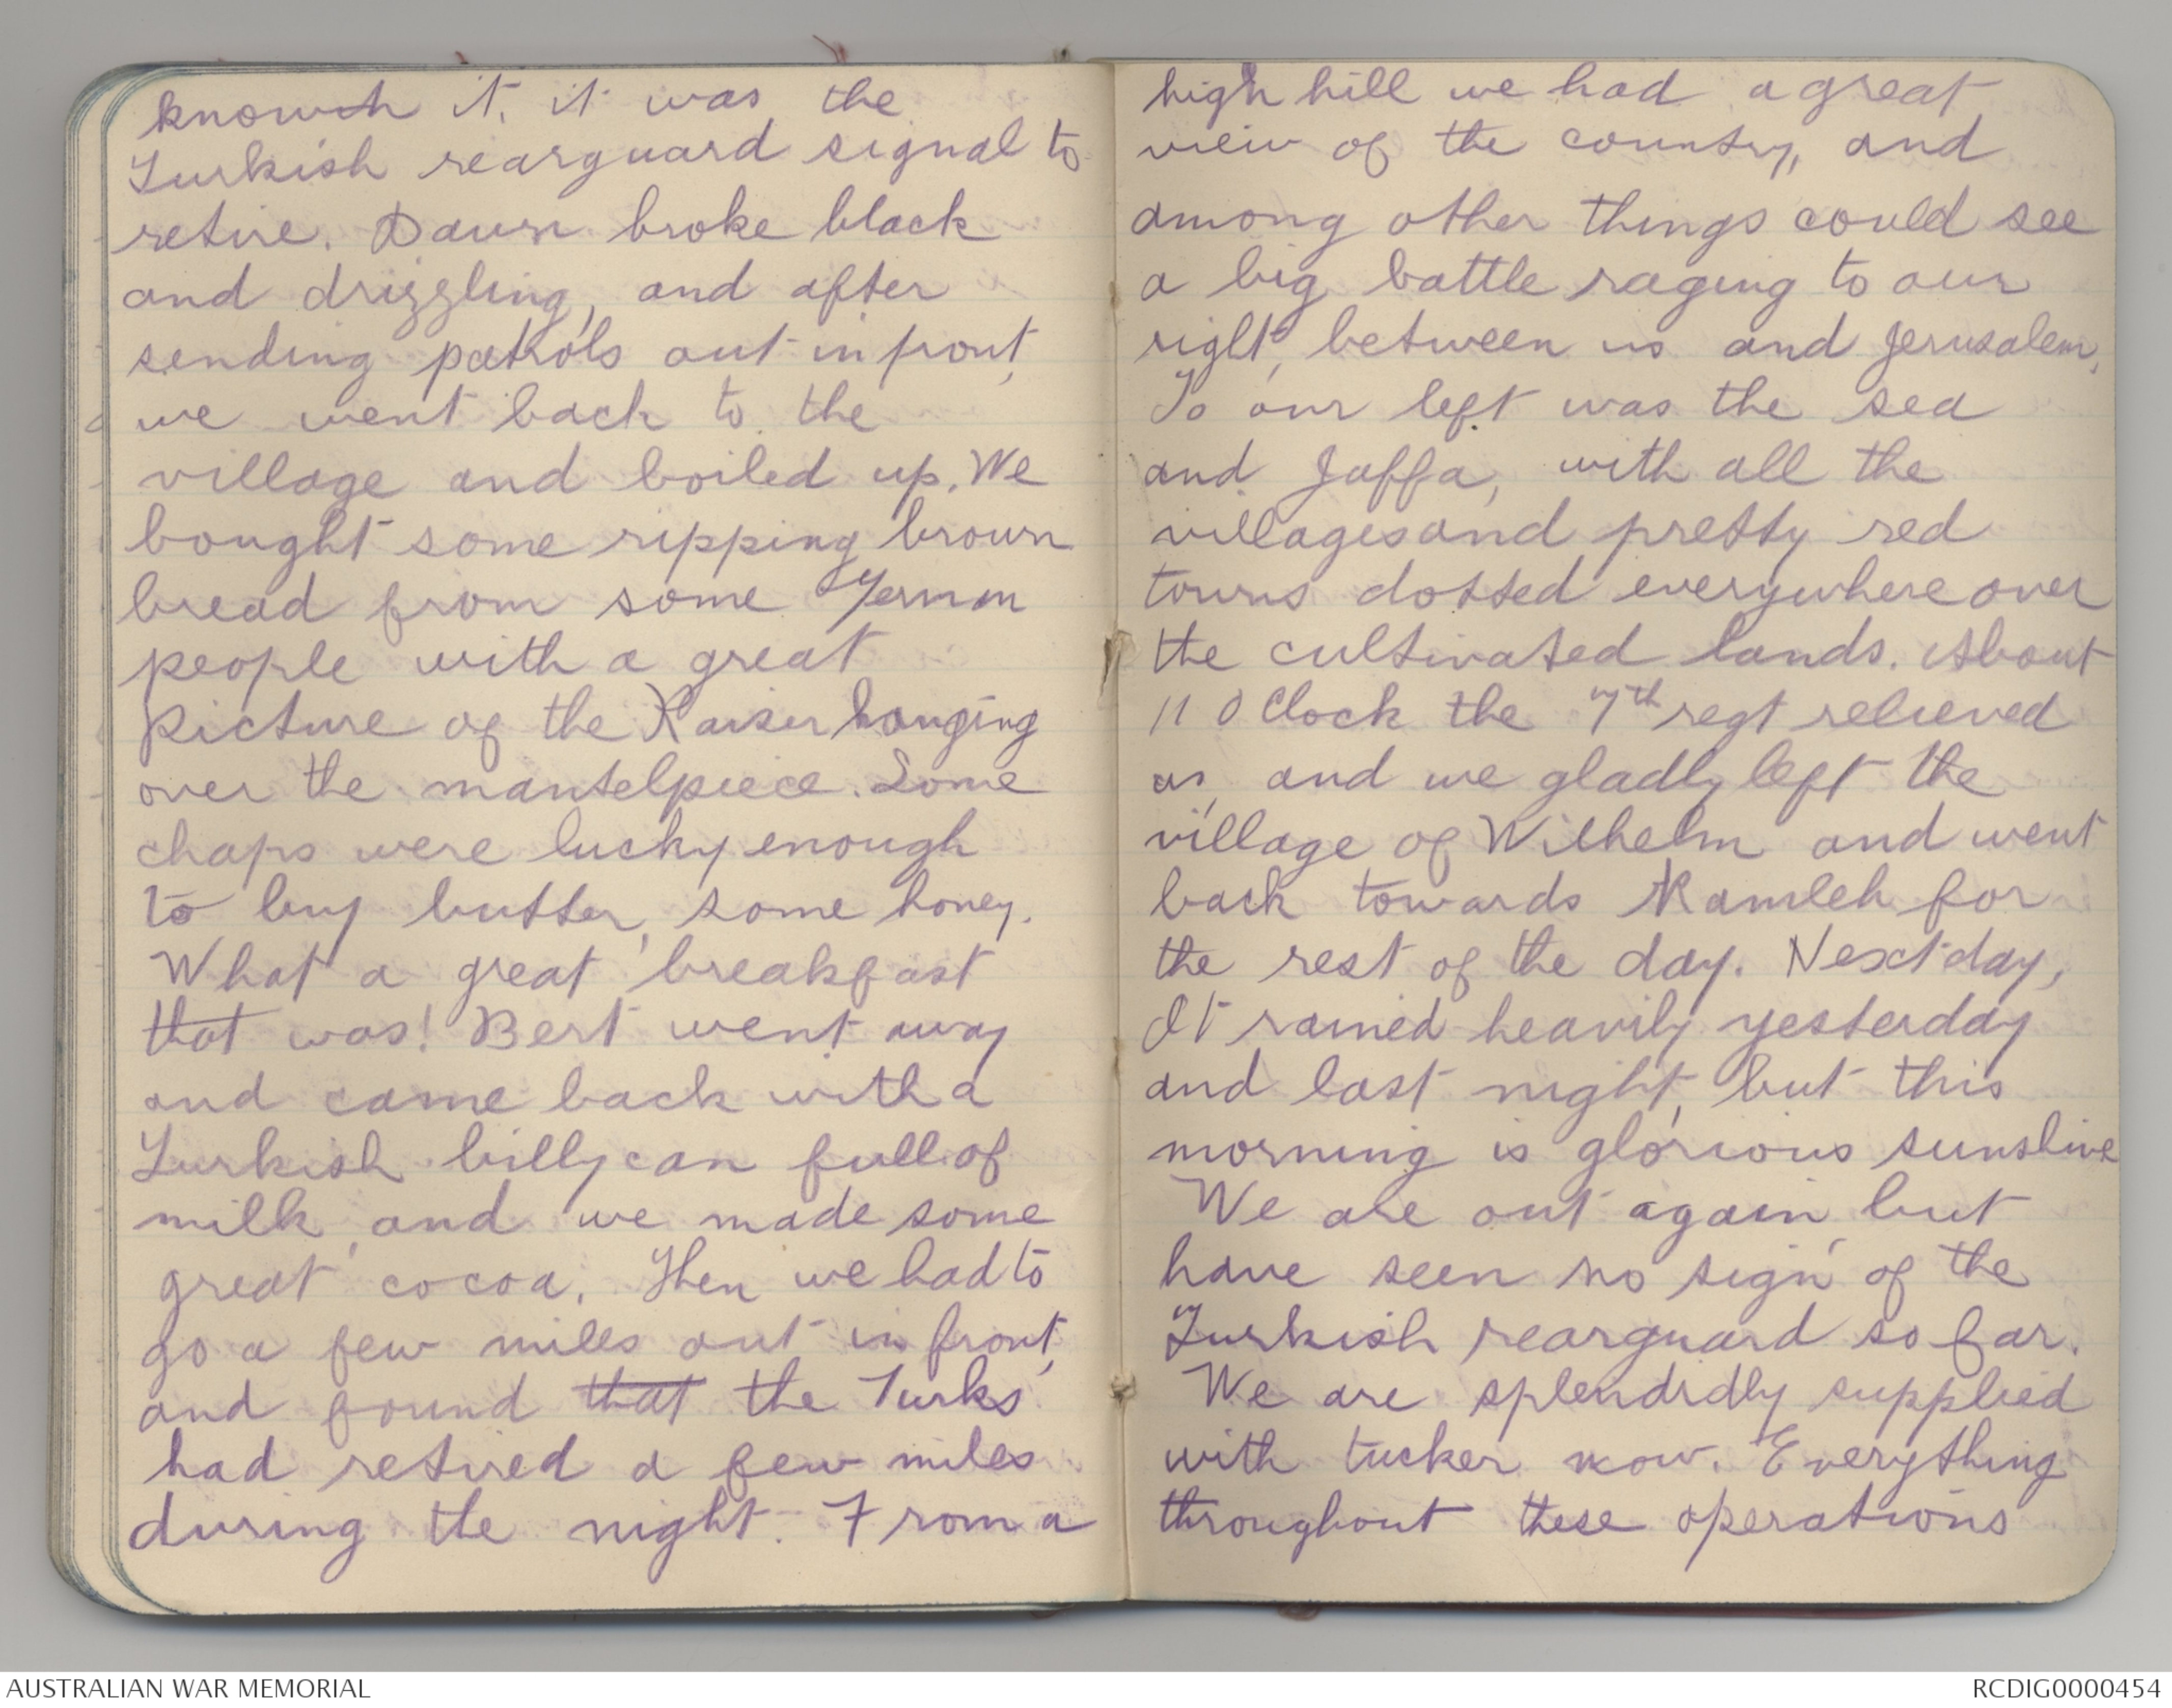 knowth it, it was the
Turkish rearguard signal to
retire. Dawn broke black
and drizzling, and after
sending patrols out in front,
we went back to the
village and boiled up. We
bought some ripping brown
bread from some German
people with a great
picture of the Kaiser hanging
over the mantelpiece. Some
chaps were lucky enough
to buy butter, some honey.
What a great breakfast
that was! Bert went away
and came back with a
Turkish billy can full of
milk, and we made some
great cocoa. Then we had to
go a few miles out in front,
and found that the Turks
had retired a few miles
during the night. From a
high hill we had a great
view of the country, and
among other things could see
a big battle raging to our
right, between us and Jerusalem,
To our left was the sea
and Jaffa, with all the
villages and pretty red
towns dotted everywhere over
the cultivated lands. About
11 O Clock the 7th regt relieved
us, and we gladly left the
village of Wilhelm and went
back towards Ramleh for
the rest of the day. Next day,
It rained heavily yesterday
and last night, but this
morning is glorious sunshine
We are out again, but
have seen no sign of the
Turkish rearguard so far.
We are splendidly supplied
with tucker now. Everything
throughout these operations
AUSTRALIAN WAR MEMORIAL
RCDIG0000454